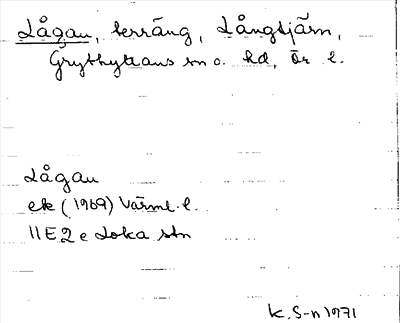 Lågan, terräng, Långtjärn,
Grythyttans sn o. hd, Ör l.
Lågan
ek (1969) Värml. l.
11E2e Loka stn
K. S-n 1971